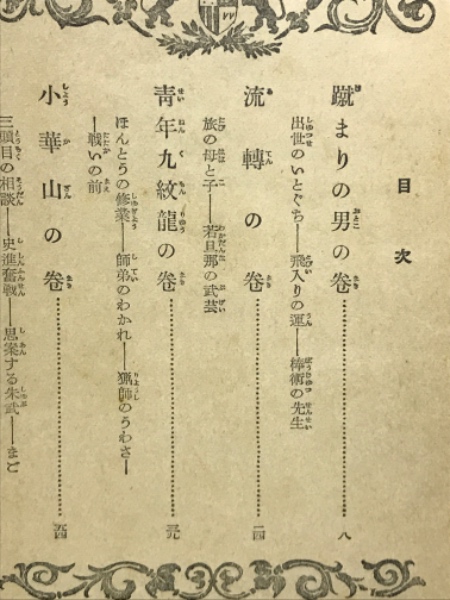 目次
蹴まりの男の卷……………八
出世のいとぐち――飛入りの運――棒術の先生
流轉の卷……………二四
旅の母と子――若旦那の武芸
靑年九紋龍の卷……………
ほんとうの修業――師弟のわかれ――猟師のうわさ―
―戦いの前
小華山の卷……………
三頭目の相談――史進奮戦――思案する朱武――まど